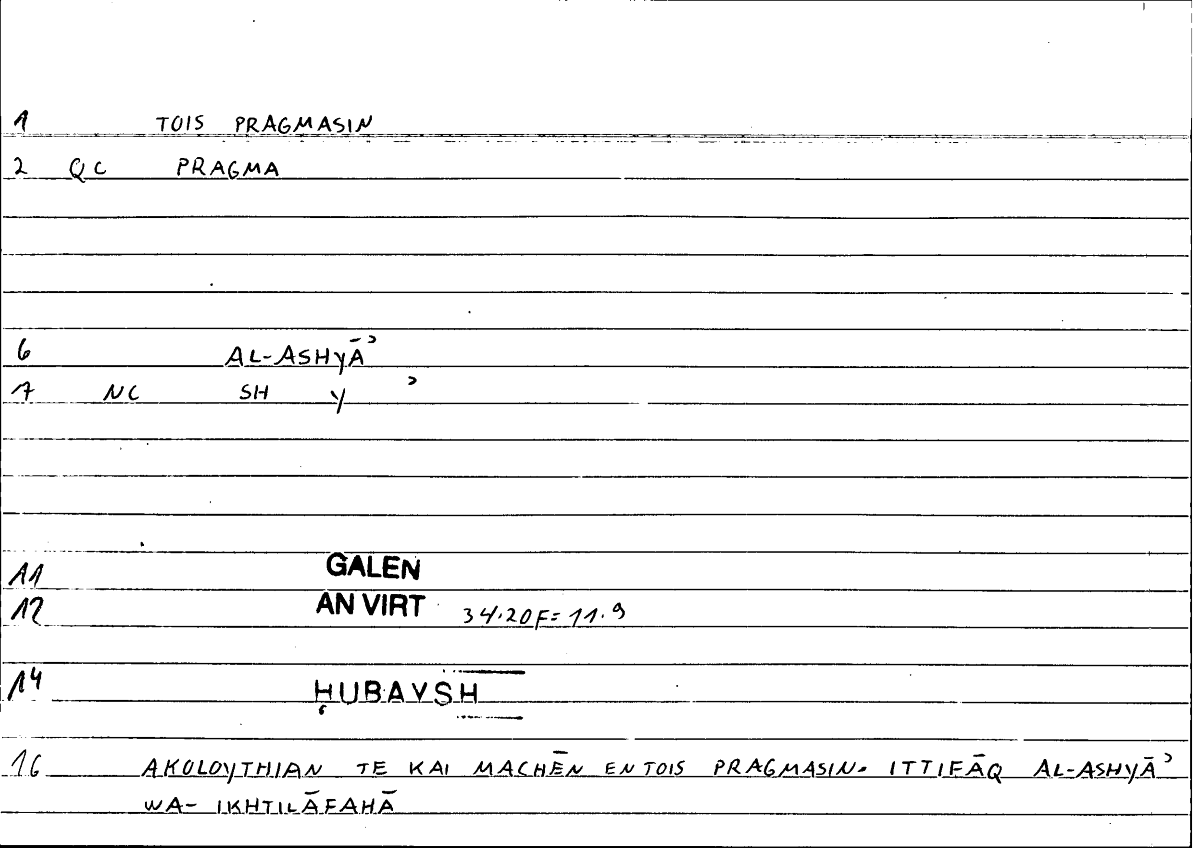 1 TOIS PRAGMASIN
2 QC PRAGMA
6 AL-ASHYĀʾ
7 NC SH Y ʾ
11 GALEN
12 AN VIRT 34.20F=11.9
14 ḤUBAYSH
16 AKOLOYTHIAN TE KAI MACHĒN EN TOIS PRAGMASIN= ITTIFĀQ AL-ASHYĀʾ
WA- IKHTILĀFAHĀ